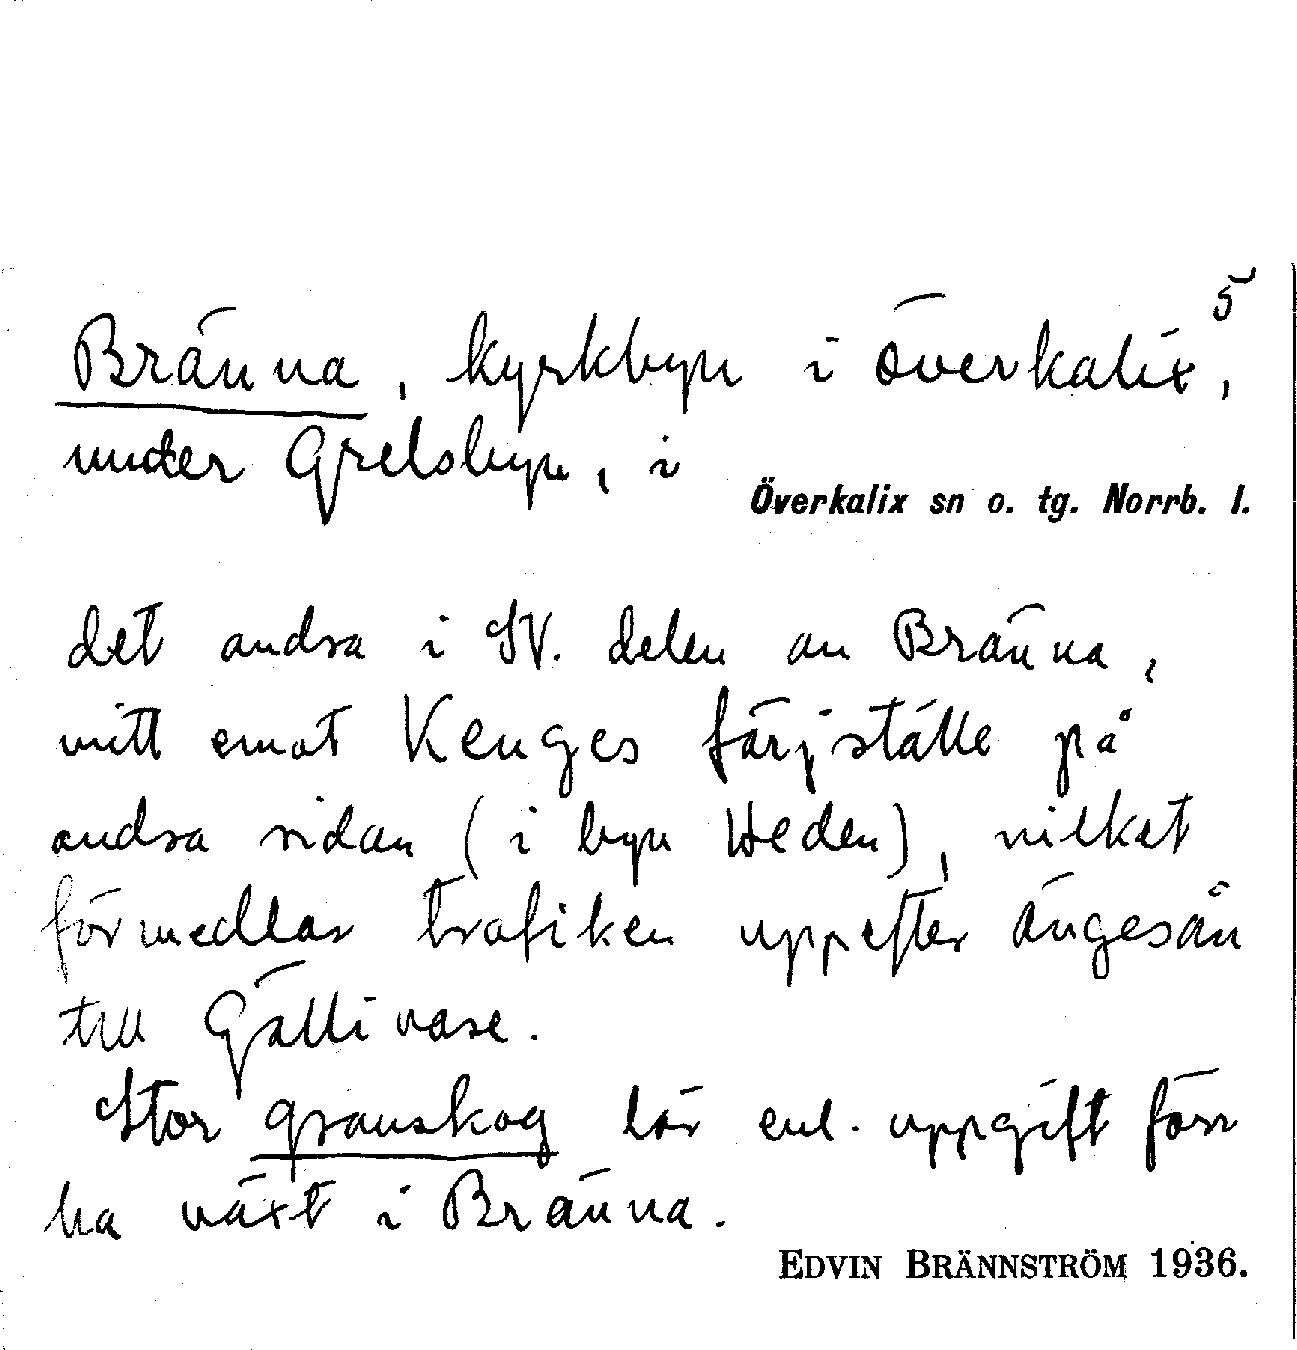 5
Bränna, kyrkbyn i Överkalix,
under Grelsbyn, i
Överkalix sn o. tg. Norrb. l.
det andra i SV. delen av Bränna,
mitt emot Kenges färjställe på
andra sidan (i byn Heden), vilket
förmedlar trafiken uppefter Ängesån
till Gällivare.
Stor granskog lär enl. uppgift förr
ha växt i Bränna.
EDVIN BRÄNNSTRÖM 1936.